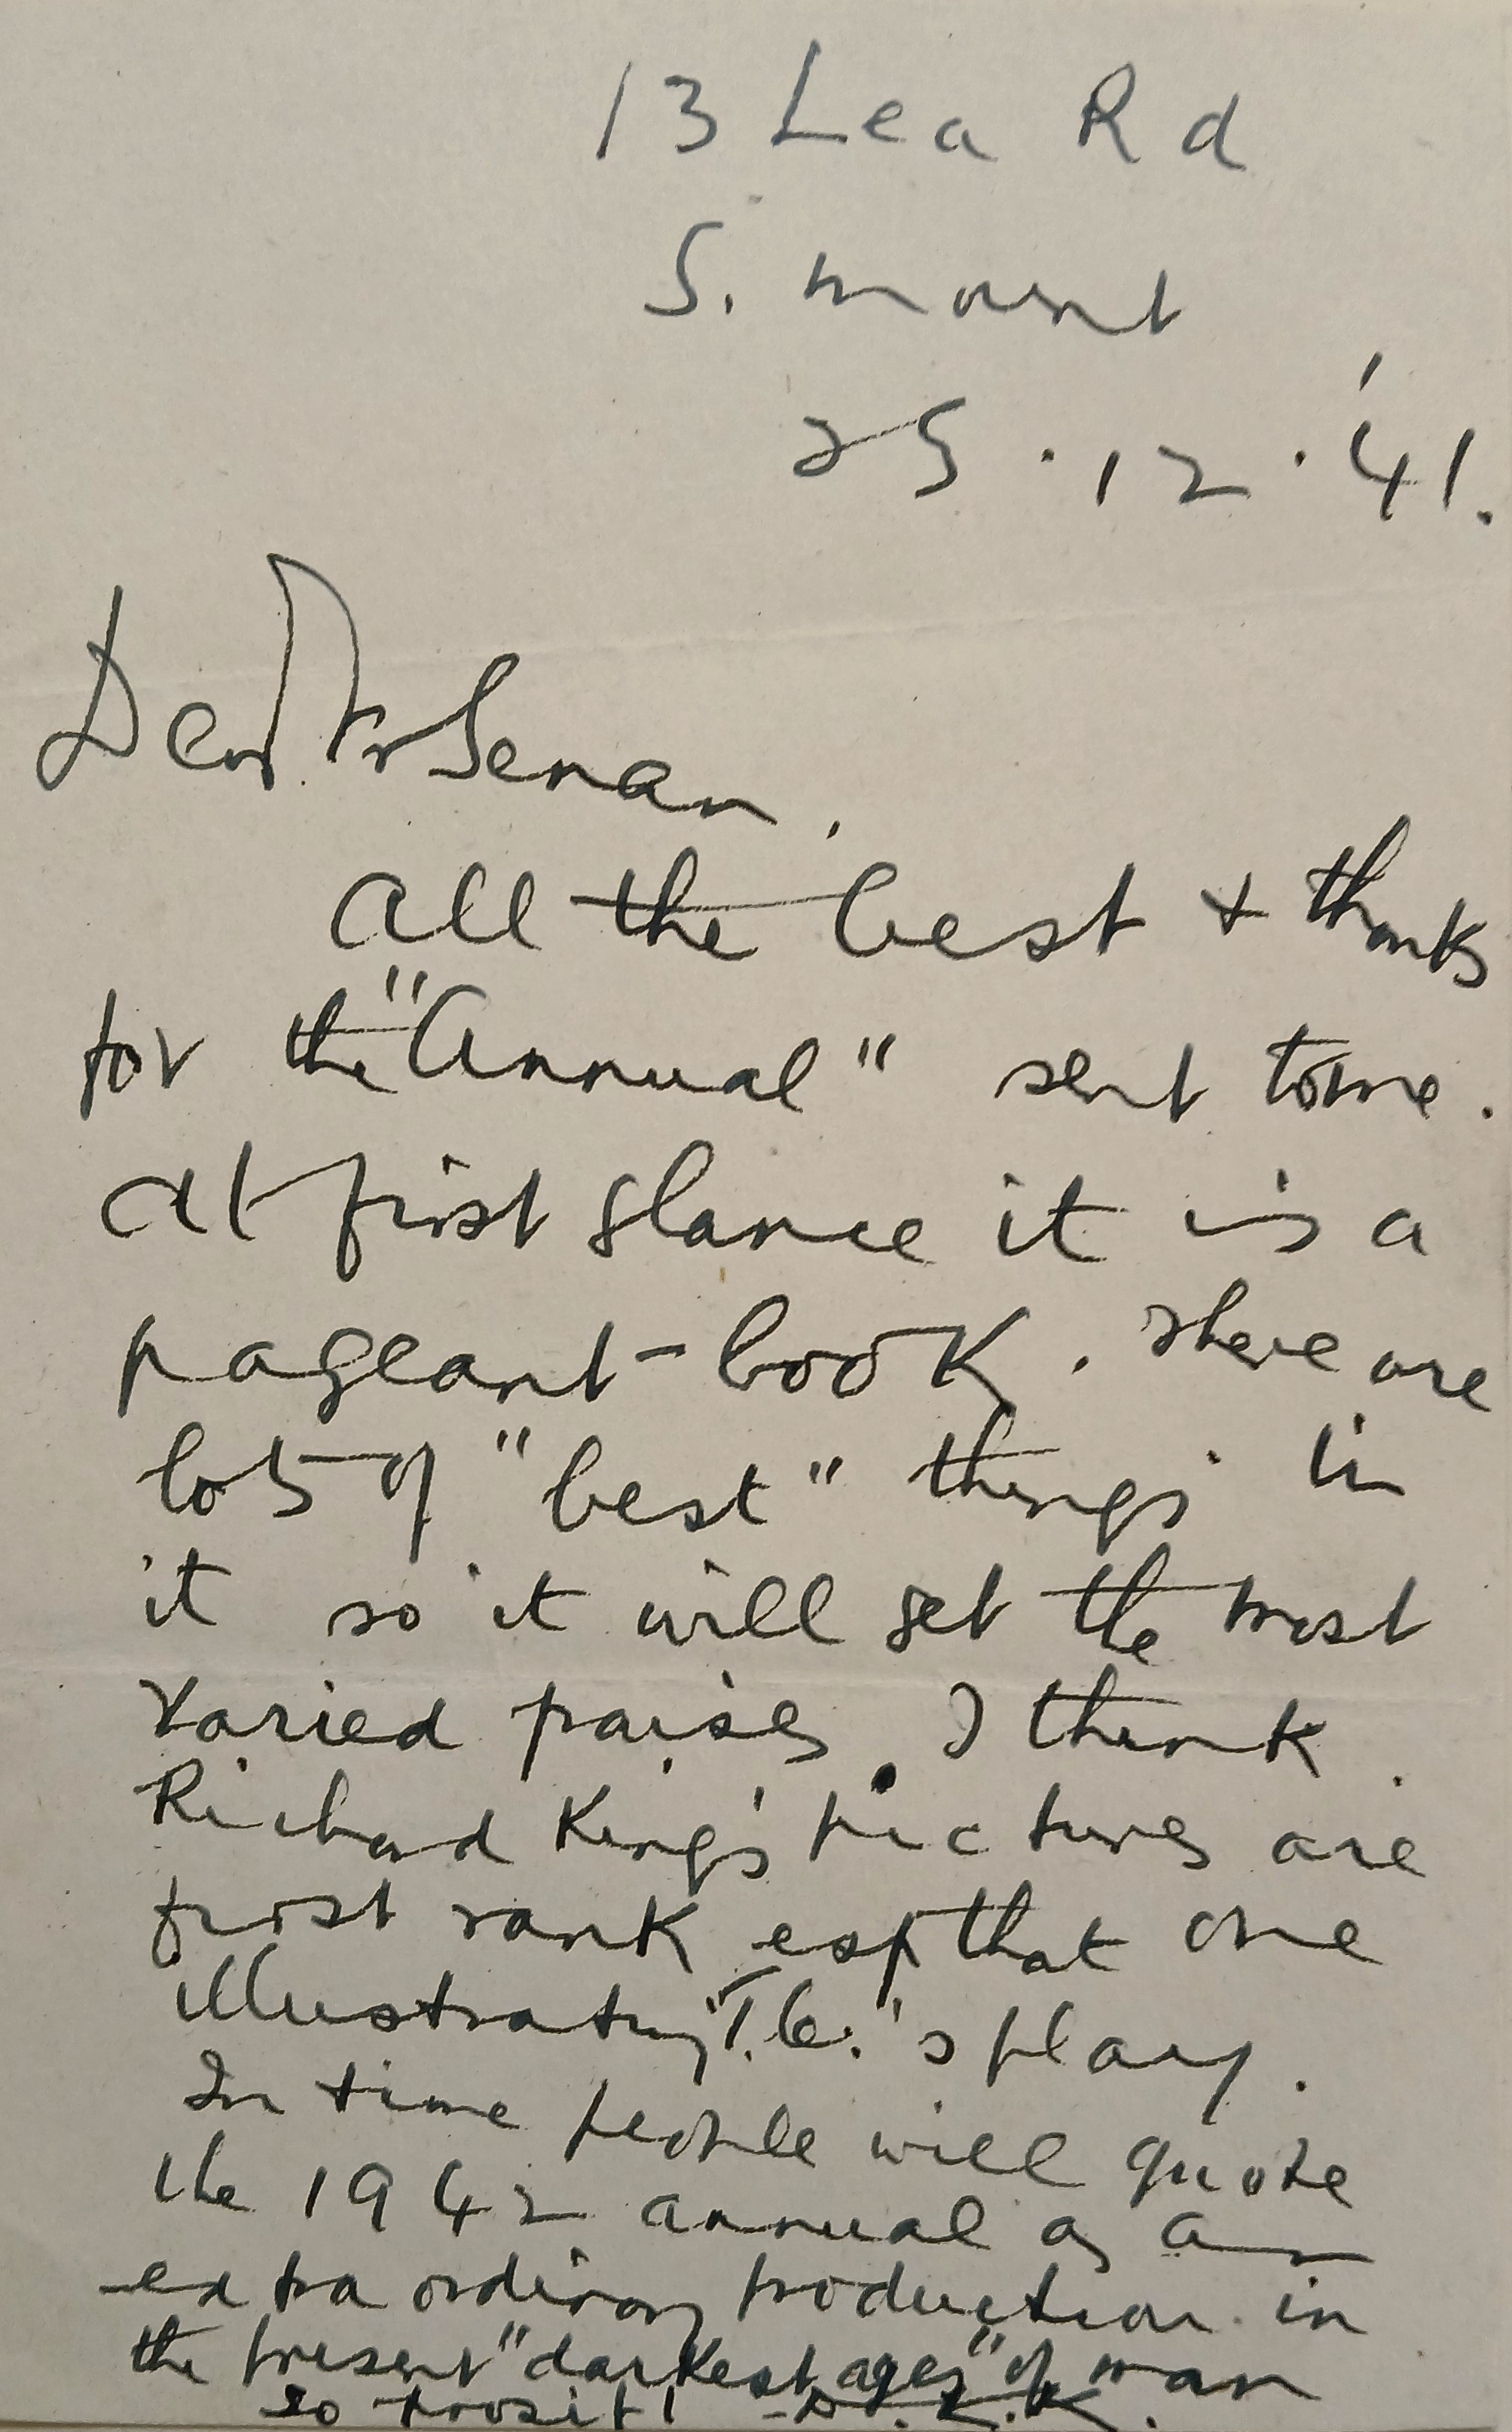 13 Lea Rd
S. mount
25.12.'41.
Dear Fr Senan,
All the best & thanks
for the "Annual" sent to me.
At first glance it is a
pageant-book. There are
lots of "best" things in
it so it will get the most
varied praises. I think
Richard King's pictures are
first rank esp that one
illustrating "T.C."'s play.
In time people will quote
the 1942 annual as an
extraordinary production in
the present "darkest ages" of man
So prosit! - K.K.